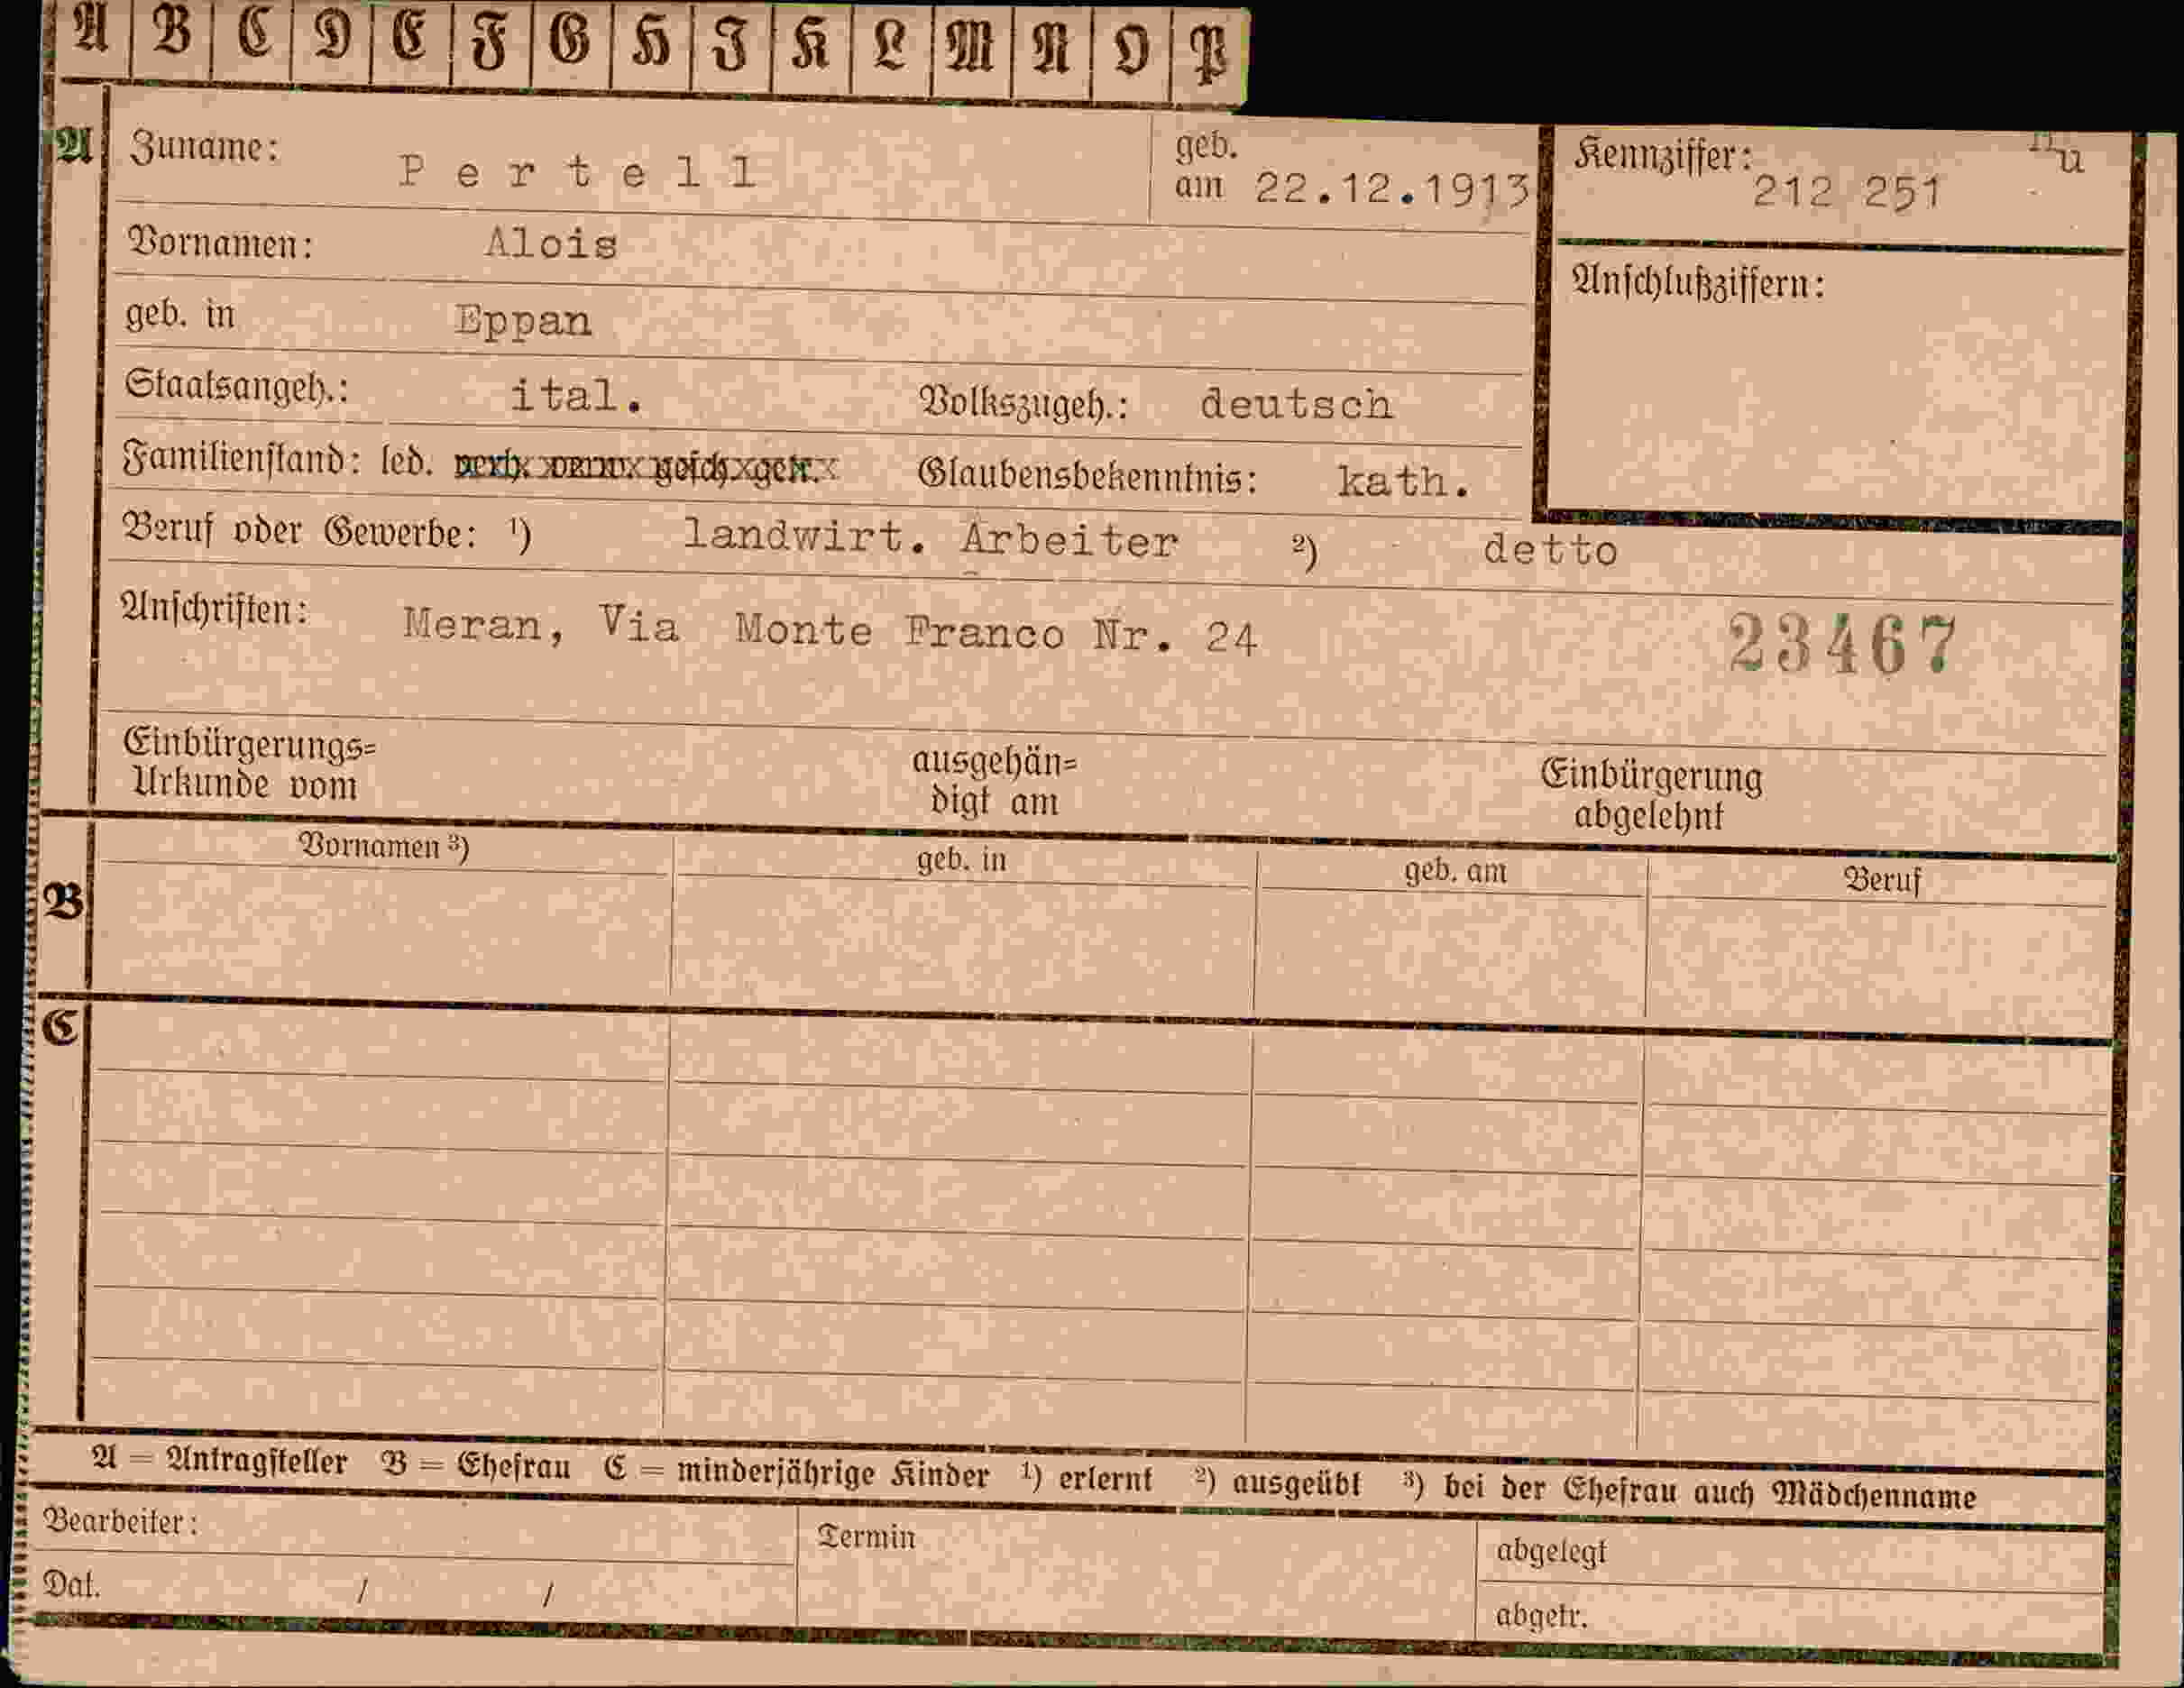 A B C D E F G H I K L M N O P
A Zuname: Pertell geb. am 22.12.1913 Kennziffer: 212 251
Vornamen: Alois
Anschlußziffern:
geb. in Eppan
Staatsangeh.: ital. Volkszugeh.: deutsch
Familienstand: led. verh. verw. gesch. getr. Glaubensbekenntnis: kath.
Beruf oder Gewerbe: ¹) landwirt. Arbeiter ²) detto
Anschriften: Meran, Via Monte Franco Nr. 24 23467
Einbürgerungs= ausgehän= Einbürgerung
Urkunde vom digt am abgelehnt
Vornamen ³) geb. in geb. am Beruf
B
C
A = Antragsteller B = Ehefrau C = minderjährige Kinder ¹) erlernt ²) ausgeübt ³) bei der Ehefrau auch Mädchenname
Bearbeiter: Termin abgelegt
Dat. / / abgetr.